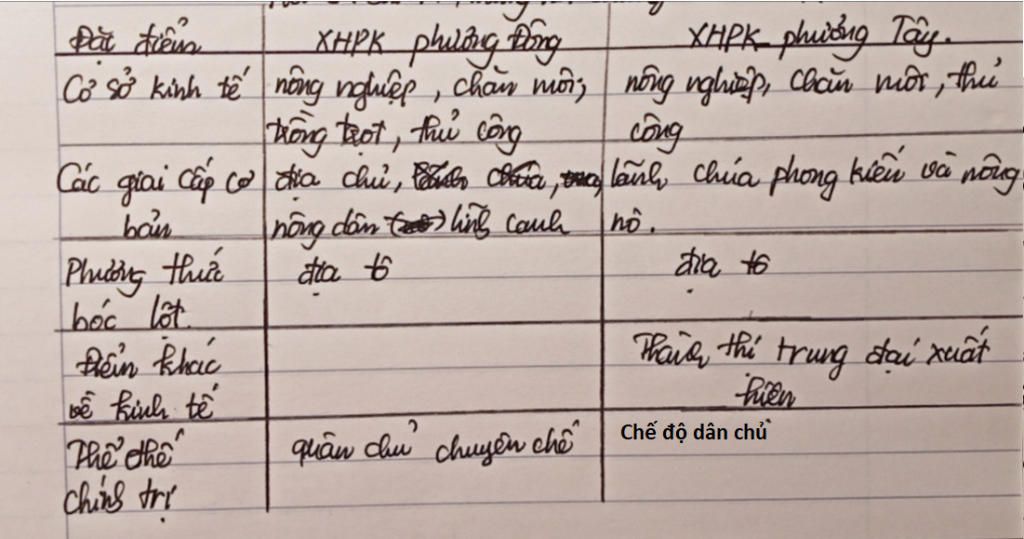 Đặc điểm XHPK phương Đông XHPK phương Tây.
Cơ sở kinh tế nông nghiệp, chăn nuôi, nông nghiệp, chăn nuôi, thủ
trồng trọt, thủ công công
Các giai cấp cơ địa chủ, lãnh chúa phong kiến và nông
bản nông dân lĩnh canh nô.
Phương thức địa tô địa tô
bóc lột.
Điểm khác Thành thị trung đại xuất
về kinh tế hiện
Thể chế quân chủ chuyên chế Chế độ dân chủ
chính trị